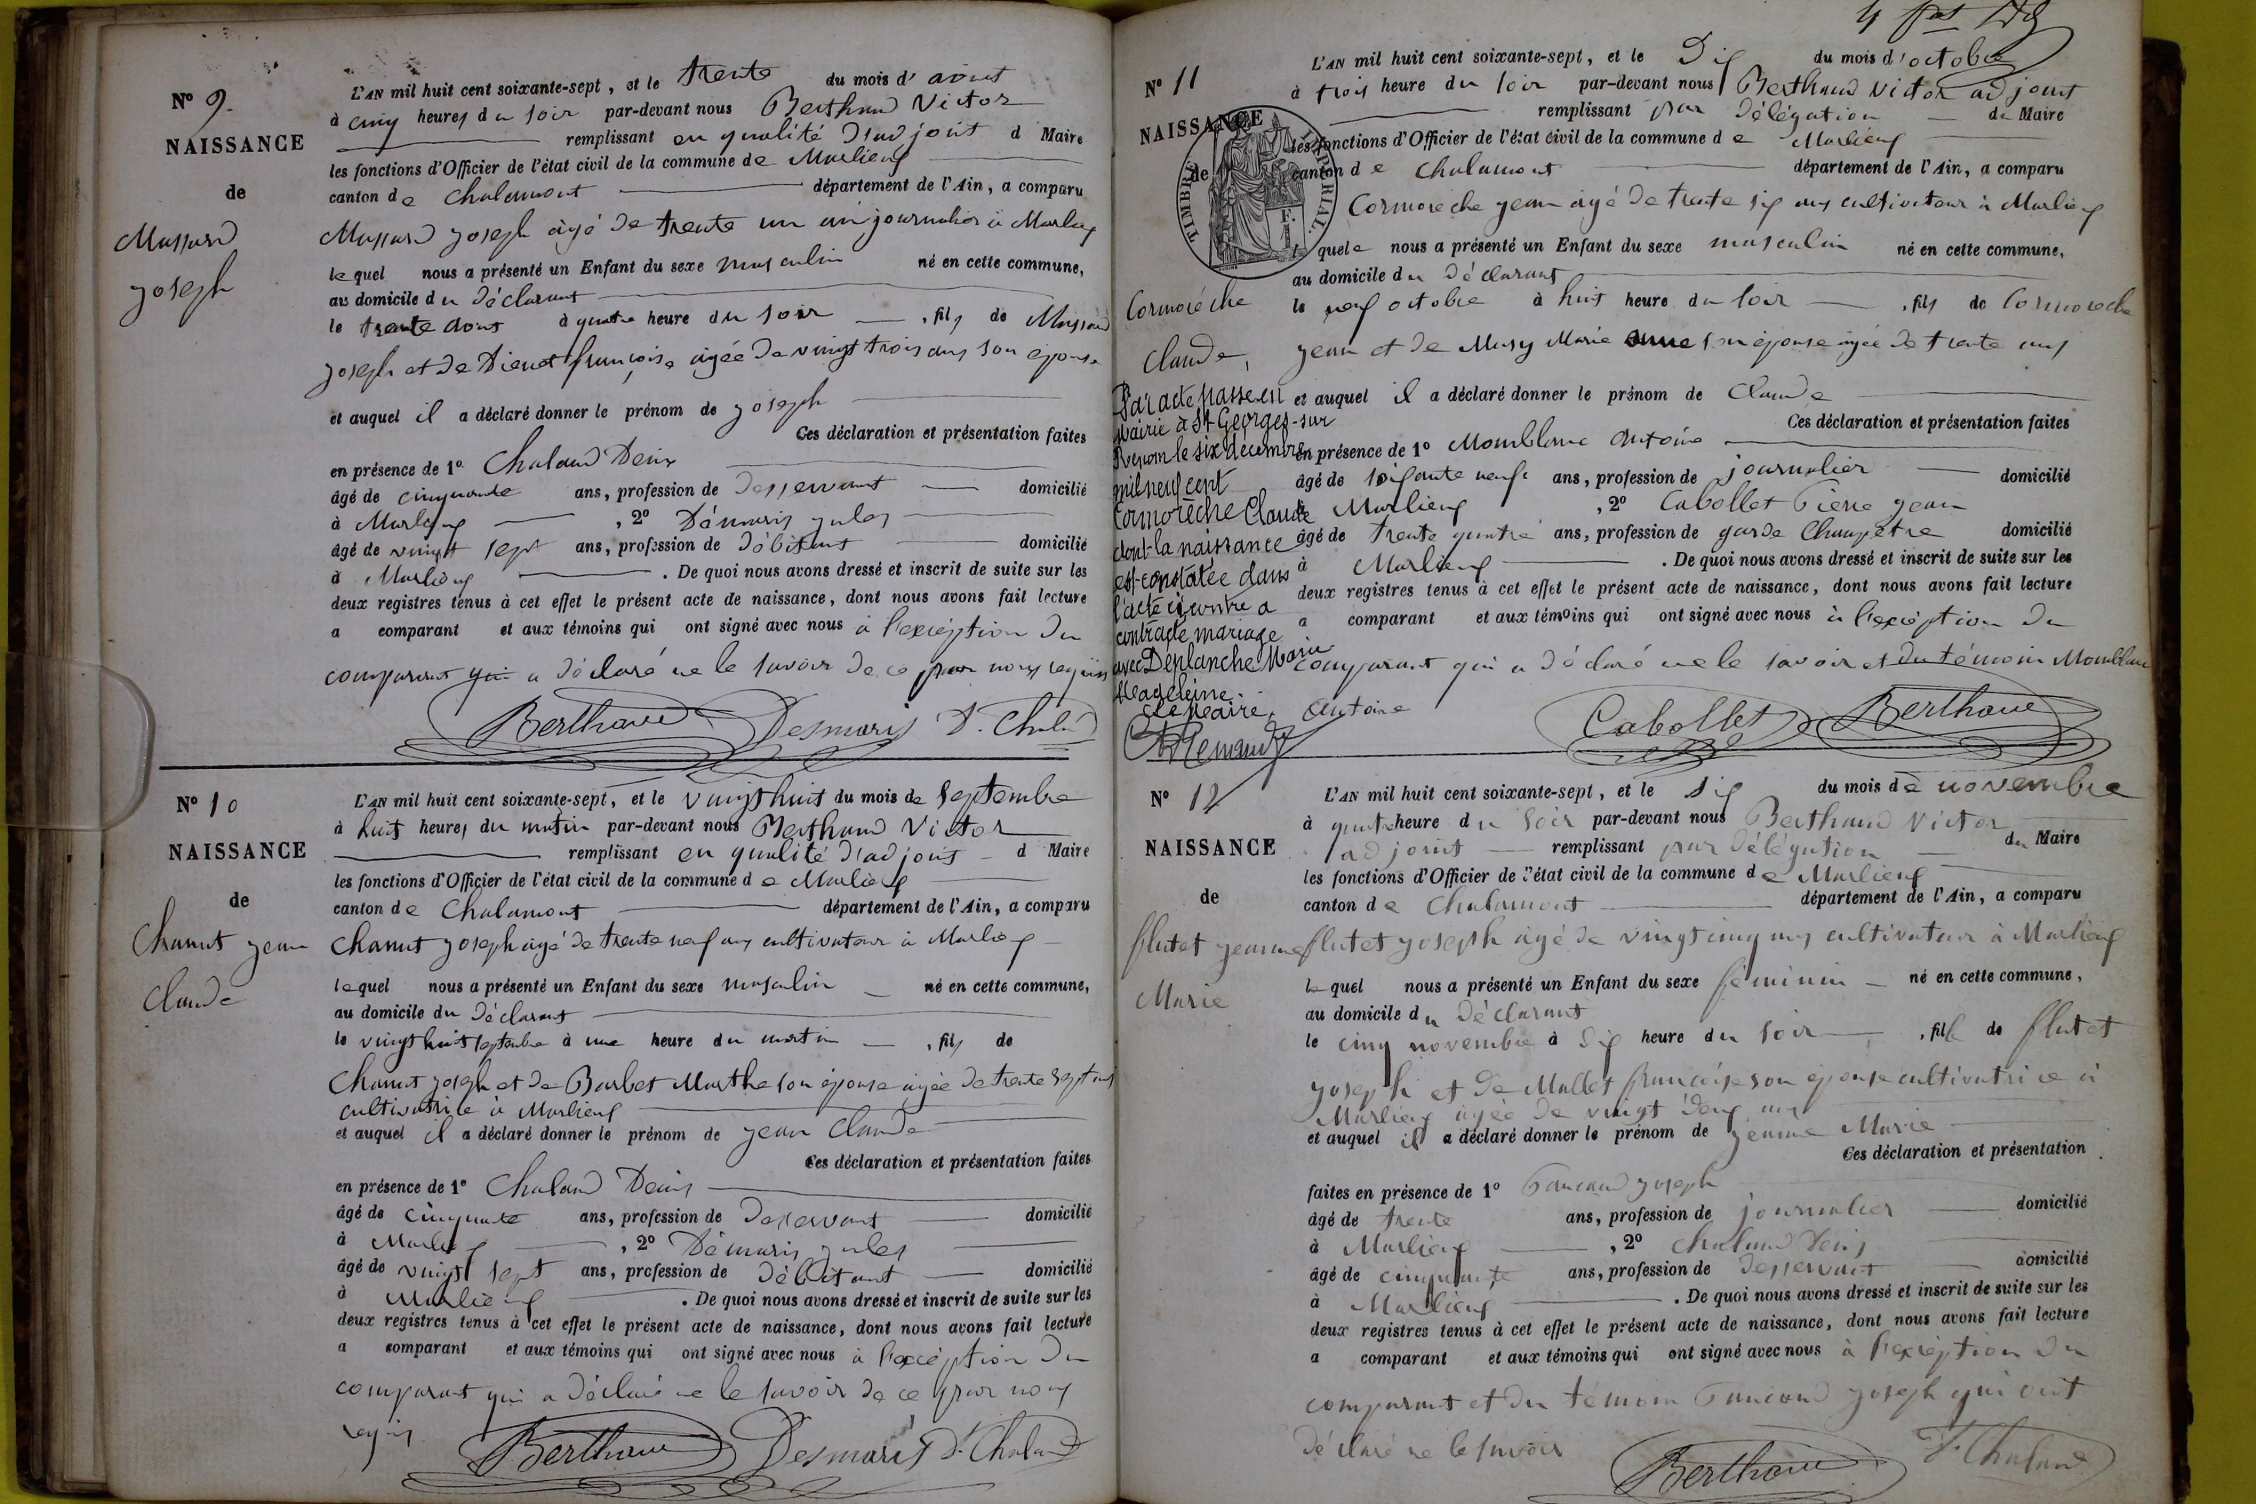 N° 9.
NAISSANCE
de
Mussard
joseph
L'AN mil huit cent soixante-sept, et le trente du mois d' août
à cinq heures du soir par-devant nous Berthaud Victor
remplissant en qualité d'adjoint d Maire
les fonctions d'Officier de l'état civil de la commune de Marlieux
canton de Chalamont département de l'Ain, a comparu
Mussard joseph âgé de trente un an journalier à Marlieux
lequel nous a présenté un Enfant du sexe masculin né en cette commune,
au domicile du déclarant
le trente aout à quatre heure du soir , fils de Mussard
joseph et de françoise agée de vingt trois ans son épouse
et auquel il a déclaré donner le prénom de joseph
Ces déclaration et présentation faites
en présence de 1° Chaland Denis
âgé de cinquante ans, profession de desservant domicilié
à Marlieux , 2° Démaris jules
âgé de vingt sept ans, profession de débitant domicilié
à Marlieux . De quoi nous avons dressé et inscrit de suite sur les
deux registres tenus à cet effet le présent acte de naissance, dont nous avons fait lecture
a comparant et aux témoins qui ont signé avec nous à l'exception du
comparant qui a déclaré ne le savoir de ce par nous requis
Berthaud Desmaris D. Chaland
N° 10
NAISSANCE
de
Chanut jean
Claude
L'AN mil huit cent soixante-sept, et le vingt huit du mois de Septembre
à huit heures du matin par-devant nous Berthaud Victor
remplissant en qualité d'adjoit d Maire
les fonctions d'Officier de l'état civil de la commune de Marlieux
canton de Chalamont département de l'Ain, a comparu
Chanut joseph agé de trente neuf ans cultivateur à Marlieux
lequel nous a présenté un Enfant du sexe masculin né en cette commune,
au domicile du déclarant
le vingt huit septembre à une heure du matin , fils de
Chanut joseph et de Barbet Marthe son épouse agée de trente sept ans
cultivatrice à Marlieux
et auquel il a déclaré donner le prénom de jean Claude
Ces déclaration et présentation faites
en présence de 1° Chaland Denis
âgé de cinquante ans, profession de desservant domicilié
à Marlieux , 2° Démaris jules
âgé de vingt sept ans, profession de débitant domicilié
à Marlieux . De quoi nous avons dressé et inscrit de suite sur les
deux registres tenus à cet effet le présent acte de naissance, dont nous avons fait lecture
a comparant et aux témoins qui ont signé avec nous à l'exception du
comparant qui a déclaré ne le savoir de ce par nous
requis
Berthaud Desmaris D. Chaland
N° 11
NAISSANCE
de
TIMBRE IMPERIAL.
Cormoréche
Claude
Par acte passé en
Mairie à St Georges-sur
Renom le six décembre
mil neuf cent
Cormorèche Claude
dont la naissance
est constatée dans
l'acte ci contre a
contracté mariage
avec Deplanche Marie
Madeleine.
Le Maire,
L'AN mil huit cent soixante-sept, et le Dix du mois d'octobre
à trois heure du soir par-devant nous Berthaud Victor adjoint
remplissant par délégation du Maire
les fonctions d'Officier de l'état civil de la commune de Marlieux
canton de Chalamont département de l'Ain, a comparu
Cormoreche jean agé de trente six ans cultivateur à Marlieux
lequel nous a présenté un Enfant du sexe masculin né en cette commune,
au domicile du déclarant
le neuf octobre à huit heure du soir , fils de Cormoreche
jean et de Musy Marie anne son épouse agée de trente ans
et auquel il a déclaré donner le prénom de Claude
Ces déclaration et présentation faites
en présence de 1° Momblanc Antoine
âgé de soixante neuf ans, profession de journalier domicilié
à Marlieux , 2° Cabollet Pierre jean
âgé de trente quatre ans, profession de garde Champêtre domicilié
à Marlieux . De quoi nous avons dressé et inscrit de suite sur les
deux registres tenus à cet effet le présent acte de naissance, dont nous avons fait lecture
a comparant et aux témoins qui ont signé avec nous à l'exception du
comparant qui a déclaré ne le savoir et du témoin Momblanc
Antoine
Cabollet Berthaud
N° 12
NAISSANCE
de
flutet jeanne
Marie
L'AN mil huit cent soixante-sept, et le six du mois de novembre
à quatre heure du soir par-devant nous Berthaud Victor
adjoint remplissant par délégation du Maire
les fonctions d'Officier de l'état civil de la commune de Marlieux
canton de Chalamont département de l'Ain, a comparu
flutet joseph agé de vingt cinq ans cultivateur à Marlieux
lequel nous a présenté un Enfant du sexe féminin né en cette commune,
au domicile du déclarant
le cinq novembre à six heure du soir , fille de flutet
joseph et de Mallet françoise son épouse cultivatrice à
Marlieux agée de vingt deux ans
et auquel il a déclaré donner le prénom de jeanne Marie
Ces déclaration et présentation
faites en présence de 1° joseph
âgé de trente ans, profession de journalier domicilié
à Marlieux , 2° Chaland Denis
âgé de cinquante ans, profession de desservant domicilié
à Marlieux . De quoi nous avons dressé et inscrit de suite sur les
deux registres tenus à cet effet le présent acte de naissance, dont nous avons fait lecture
a comparant et aux témoins qui ont signé avec nous à l'exception du
comparant et du témoin joseph qui ont
déclaré ne le savoir
Berthaud D. Chaland